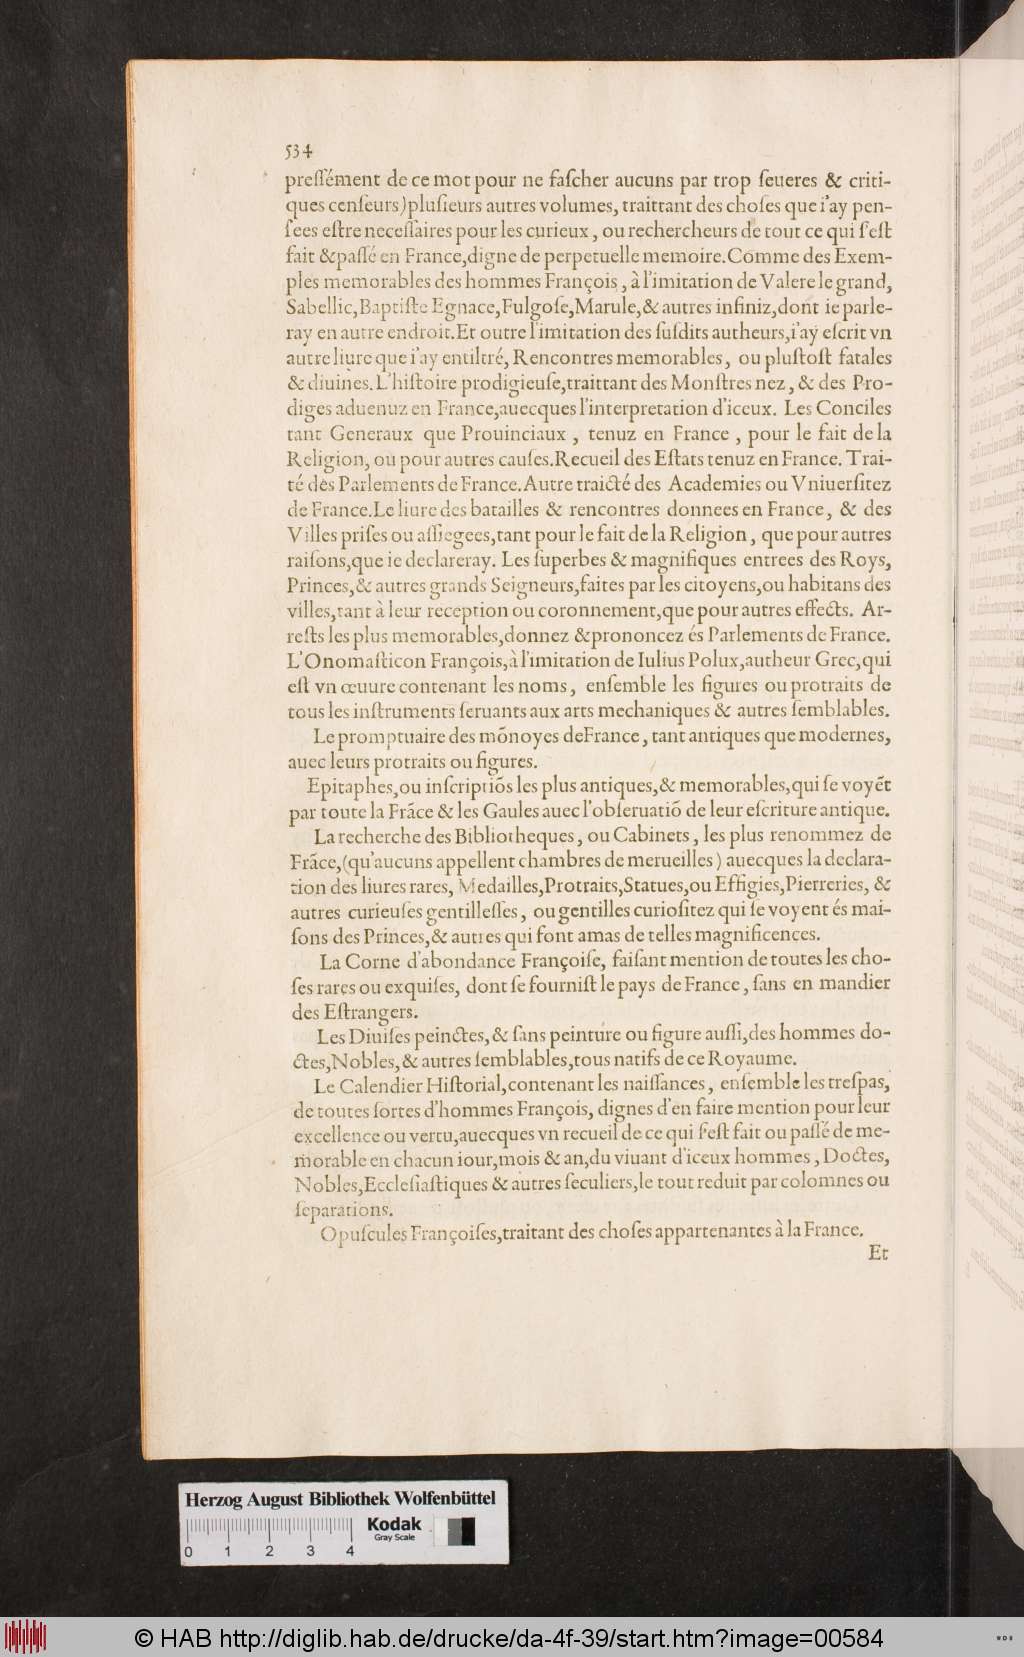 534
preſſément de ce mot pour ne faſcher aucuns par trop ſeueres & criti-
ques cenſeurs) pluſieurs autres volumes, traittant des choſes que i'ay pen-
ſees eſtre neceſſaires pour les curieux, ou rechercheurs de tout ce qui ſ'eſt
fait & paſſé en France, digne de perpetuelle memoire. Comme des Exem-
ples memorables des hommes François, à l'imitation de Valere le grand,
Sabellic, Baptiſte Egnace, Fulgoſe, Marule, & autres infiniz, dont ie parle-
ray en autre endroit. Et outre l'imitation des ſuſdits autheurs, i'ay eſcrit vn
autre liure que i'ay entiltré, Rencontres memorables, ou pluſtoſt fatales
& diuines. L'hiſtoire prodigieuſe, traittant des Monſtres nez, & des Pro-
diges aduenuz en France, auecques l'interpretation d'iceux. Les Conciles
tant Generaux que Prouinciaux, tenuz en France, pour le fait de la
Religion, ou pour autres cauſes. Recueil des Eſtats tenuz en France. Trai-
té des Parlements de France. Autre traicté des Academies ou Vniuerſitez
de France. Le liure des batailles & rencontres donnees en France, & des
Villes priſes ou aſſiegees, tant pour le fait de la Religion, que pour autres
raiſons, que ie declareray. Les ſuperbes & magnifiques entrees des Roys,
Princes, & autres grands Seigneurs, faites par les citoyens, ou habitans des
villes, tant à leur reception ou coronnement, que pour autres effects. Ar-
reſts les plus memorables, donnez & prononcez és Parlements de France.
L'Onomaſticon François, à l'imitation de Iulius Polux, autheur Grec, qui
eſt vn œuure contenant les noms, enſemble les figures ou protraits de
tous les inſtruments ſeruants aux arts mechaniques & autres ſemblables.
Le promptuaire des mõnoyes de France, tant antiques que modernes,
auec leurs protraits ou figures.
Epitaphes, ou inſcriptiõs les plus antiques, & memorables, qui ſe voyẽt
par toute la Frãce & les Gaules auec l'obſeruatiõ de leur eſcriture antique.
La recherche des Bibliotheques, ou Cabinets, les plus renommez de
Frãce, (qu'aucuns appellent chambres de merueilles) auecques la declara-
tion des liures rares, Medailles, Protraits, Statues, ou Effigies, Pierreries, &
autres curieuſes gentilleſſes, ou gentilles curioſitez qui ſe voyent és mai-
ſons des Princes, & autres qui font amas de telles magnificences.
La Corne d'abondance Françoiſe, faiſant mention de toutes les cho-
ſes rares ou exquiſes, dont ſe fourniſt le pays de France, ſans en mandier
des Eſtrangers.
Les Diuiſes peinctes, & ſans peinture ou figure auſſi, des hommes do-
ctes, Nobles, & autres ſemblables, tous natifs de ce Royaume.
Le Calendier Hiſtorial, contenant les naiſſances, enſemble les treſpas,
de toutes ſortes d'hommes François, dignes d'en faire mention pour leur
excellence ou vertu, auecques vn recueil de ce qui ſ'eſt fait ou paſſé de me-
morable en chacun iour, mois & an, du viuant d'iceux hommes, Doctes,
Nobles, Eccleſiaſtiques & autres ſeculiers, le tout reduit par colomnes ou
ſeparations.
Opuſcules Françoiſes, traitant des choſes appartenantes à la France.
Et
Herzog August Bibliothek Wolfenbüttel
Kodak
Gray Scale
0 1 2 3 4
© HAB http://diglib.hab.de/drucke/da-4f-39/start.htm?image=00584